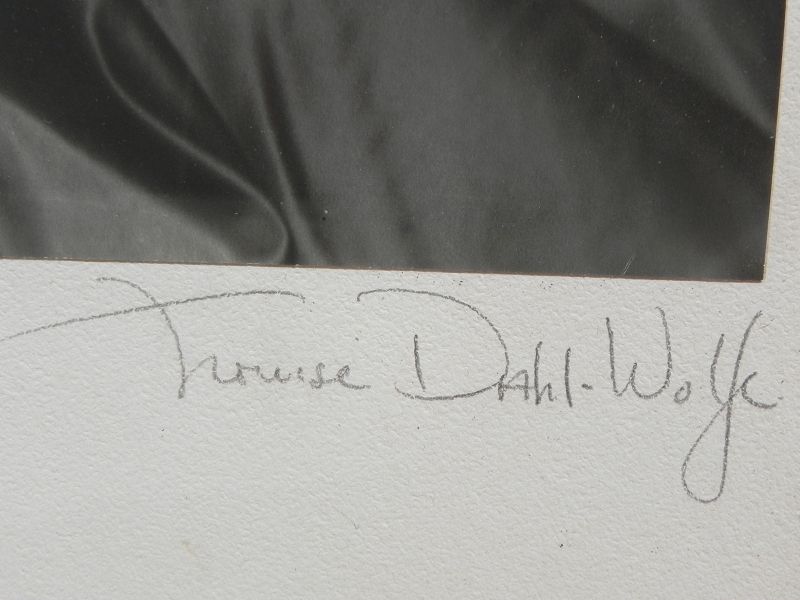 Louise Dahl-Wolfe